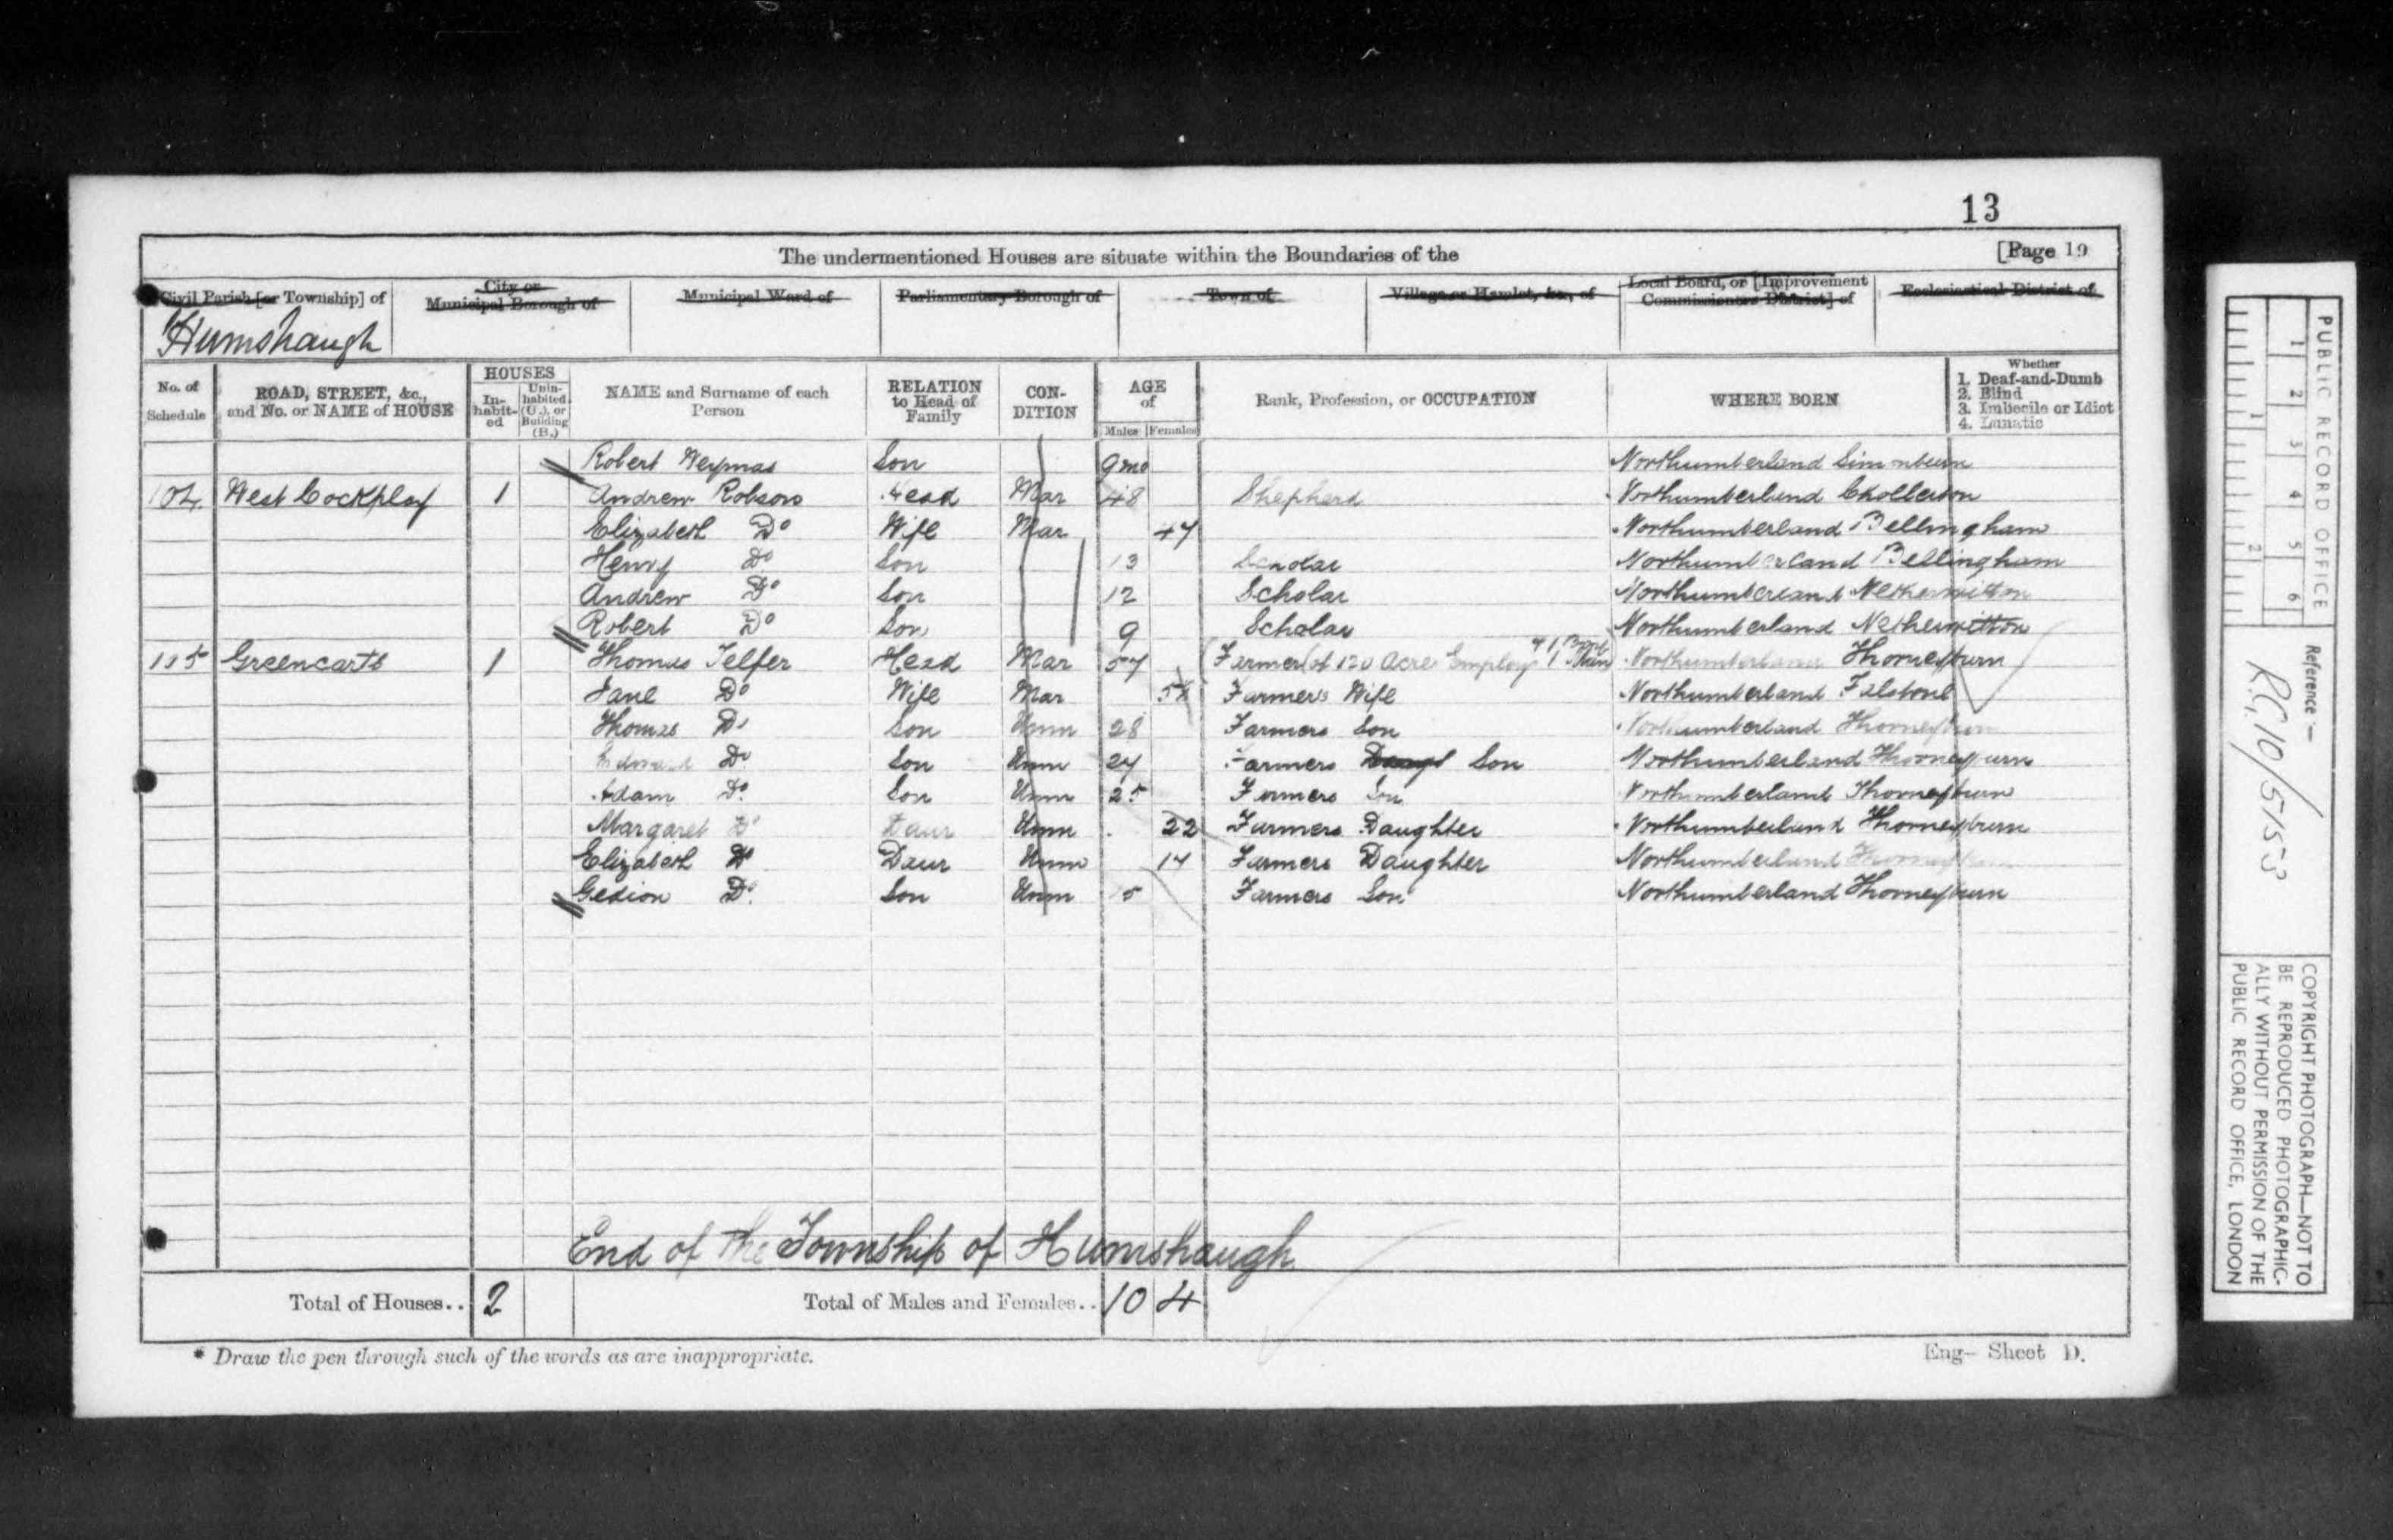 13
The undermentioned Houses are situate within the Boundaries of the
[Page 19
Civil Parish [or Township] of
City or Municipal Borough of
Municipal Ward of
Parliamentary Borough of
Town of
Village or Hamlet, &c., of
Local Board, or [Improvement Commissioners District] of
Ecclesiastical District of
Humshaugh
No. of Schedule
ROAD, STREET, &c., and No. or NAME of HOUSE
HOUSES
In-habit-ed
Unin-habited (U.), or Building (B.)
NAME and Surname of each Person
RELATION to Head of Family
CON-DITION
AGE of
Males Females
Rank, Profession, or OCCUPATION
WHERE BORN
Whether
1. Deaf-and-Dumb
2. Blind
3. Imbecile or Idiot
4. Lunatic
Robert Son 9 mo Northumberland Simonburn
104 West Cockplay 1 Andrew Robson Head Mar 48 Shepherd Northumberland Chollerton
Elizabeth Do Wife Mar 47 Northumberland Bellingham
Henry Do Son 13 Scholar Northumberland Bellingham
Andrew Do Son 12 Scholar Northumberland Netherwitton
Robert Do Son 9 Scholar Northumberland Netherwitton
105 Greencarts 1 Thomas Telfer Head Mar 57 Farmer (of 120 Acre Employ 1 Man Northumberland Thorneyburn
Jane Do Wife Mar Farmers Wife Northumberland Falstone
Thomas Do Son Unm 28 Farmers Son Northumberland Thorneyburn
Edward Do Son Unm Farmers Son Northumberland Thorneyburn
Adam Do Son Unm 25 Farmers Son Northumberland Thorneyburn
Margaret Do Daur Unm 22 Farmers Daughter Northumberland Thorneyburn
Elizabeth Do Daur Unm Farmers Daughter Northumberland Thorneyburn
Gedion Do Son Unm Farmers Son Northumberland Thorneyburn
End of the Township of Humshaugh
Total of Houses.. 2
Total of Males and Females.. 10 4
* Draw the pen through such of the words as are inappropriate.
Eng- Sheet D.
PUBLIC RECORD OFFICE
1 2 3 4 5 6
1 2
Reference:-
R.G. 10/5153
COPYRIGHT PHOTOGRAPH—NOT TO
BE REPRODUCED PHOTOGRAPHIC-
ALLY WITHOUT PERMISSION OF THE
PUBLIC RECORD OFFICE, LONDON